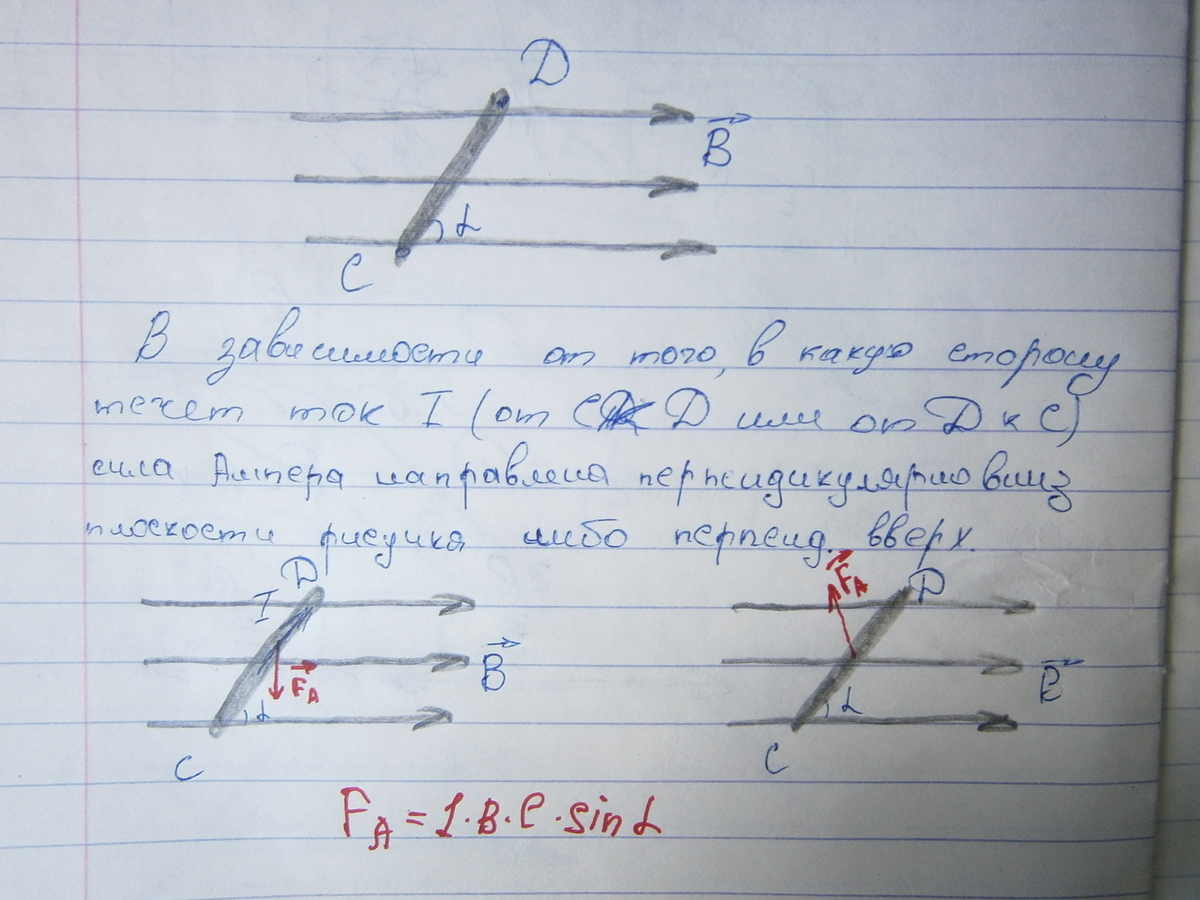 D
B
α
C
В зависимости от того, в какую сторону
течет ток I (от C к D или от D к C)
сила Ампера направлена перпендикулярно вниз
плоскости рисунка либо перпенд. вверх.
D
I
B
F_A
α
C
F_A
D
B
α
C
F_A = I·B·l·sin α